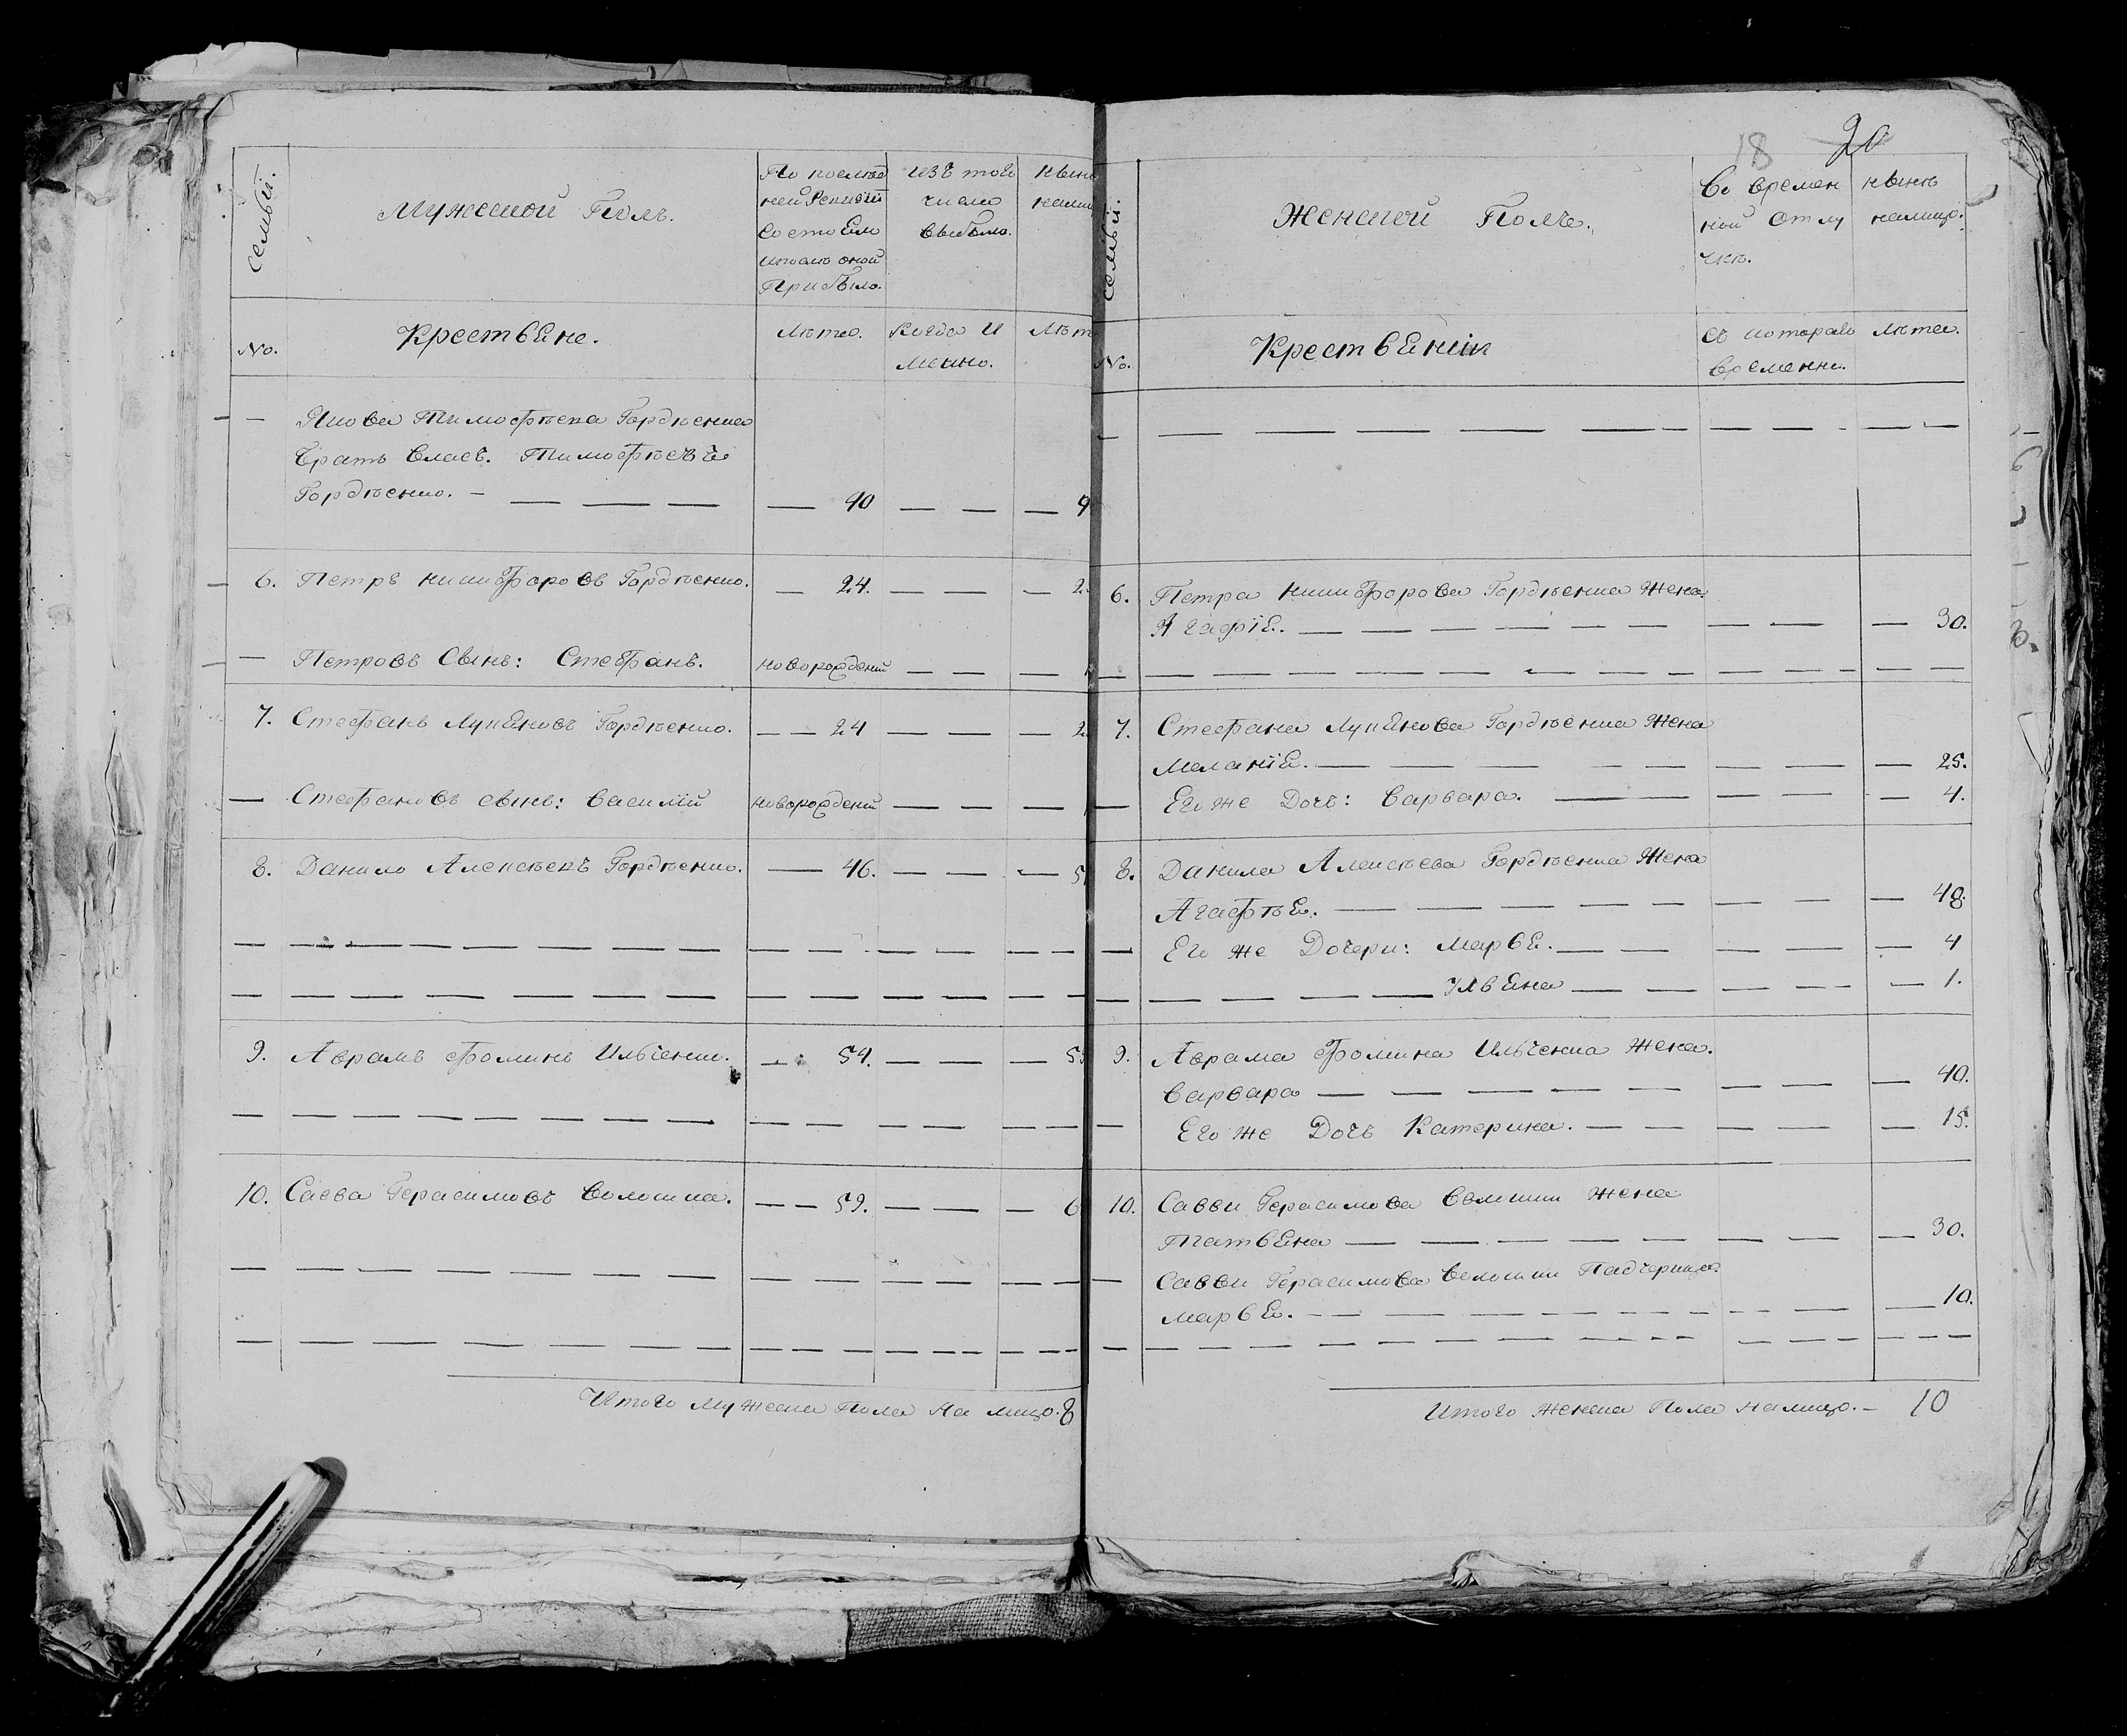 18 20
Семьи.
Мужеской Полъ.
По послед
ней Ревизїи
Состоѣло
и после оной
Прибыло.
Изъ того
числа
выбыло.
Ныне
налиц
No.
Крестьяне.
Лета.
Когда И
менно.
Лет
— Якова Тимофѣева Гордѣенка
Братъ Власъ. Тимофѣевъ
Гордѣенко. — — 40 — —
6. Петръ Никифоровъ Гордѣенко. — 24. — — — 2
— Петровъ Сынъ: Стефанъ. новорожденый — — —
7. Стефанъ Лукьяновъ Гордѣенко. — — 24 — — — 2
— Стефановъ сынъ: Василїй новорожденый — — —
8. Данило Алексѣевъ Гордѣенко. — 46. — — — 5
9. Аврамъ Фоминъ Ильченко. — 54. — — — 5
10. Савва Герасимовъ Волошка. — — 59. — — — 6
Итого Мужеска Пола На лицо. 8
Семьи.
Женской Полъ.
Во времен
ной Отлу
чке.
Ныне
налицо.
No.
Крестьянки
Съ котораго
времени.
Лета.
6. Петра Никифорова Гордѣенка Жена
Агафїя. — 30.
7. Стефана Лукьянова Гордѣенка Жена
Меланїя. — 25.
— Его же Дочь: Варвара. — 4.
8. Данила Алексѣева Гордѣенка Жена
Агафья. — 48.
— Его же Дочери: Марья. — 4
Ульяна — 1.
9. Аврама Фомина Ильченка Жена.
Варвара — 40.
— Его же Дочь Катерина. — 15.
10. Саввы Герасимова Волошки Жена
Татьяна — 30.
— Саввы Герасимова Волошки Падчерица.
Марья. — 10.
Итого Женска Пола Налицо. — 10